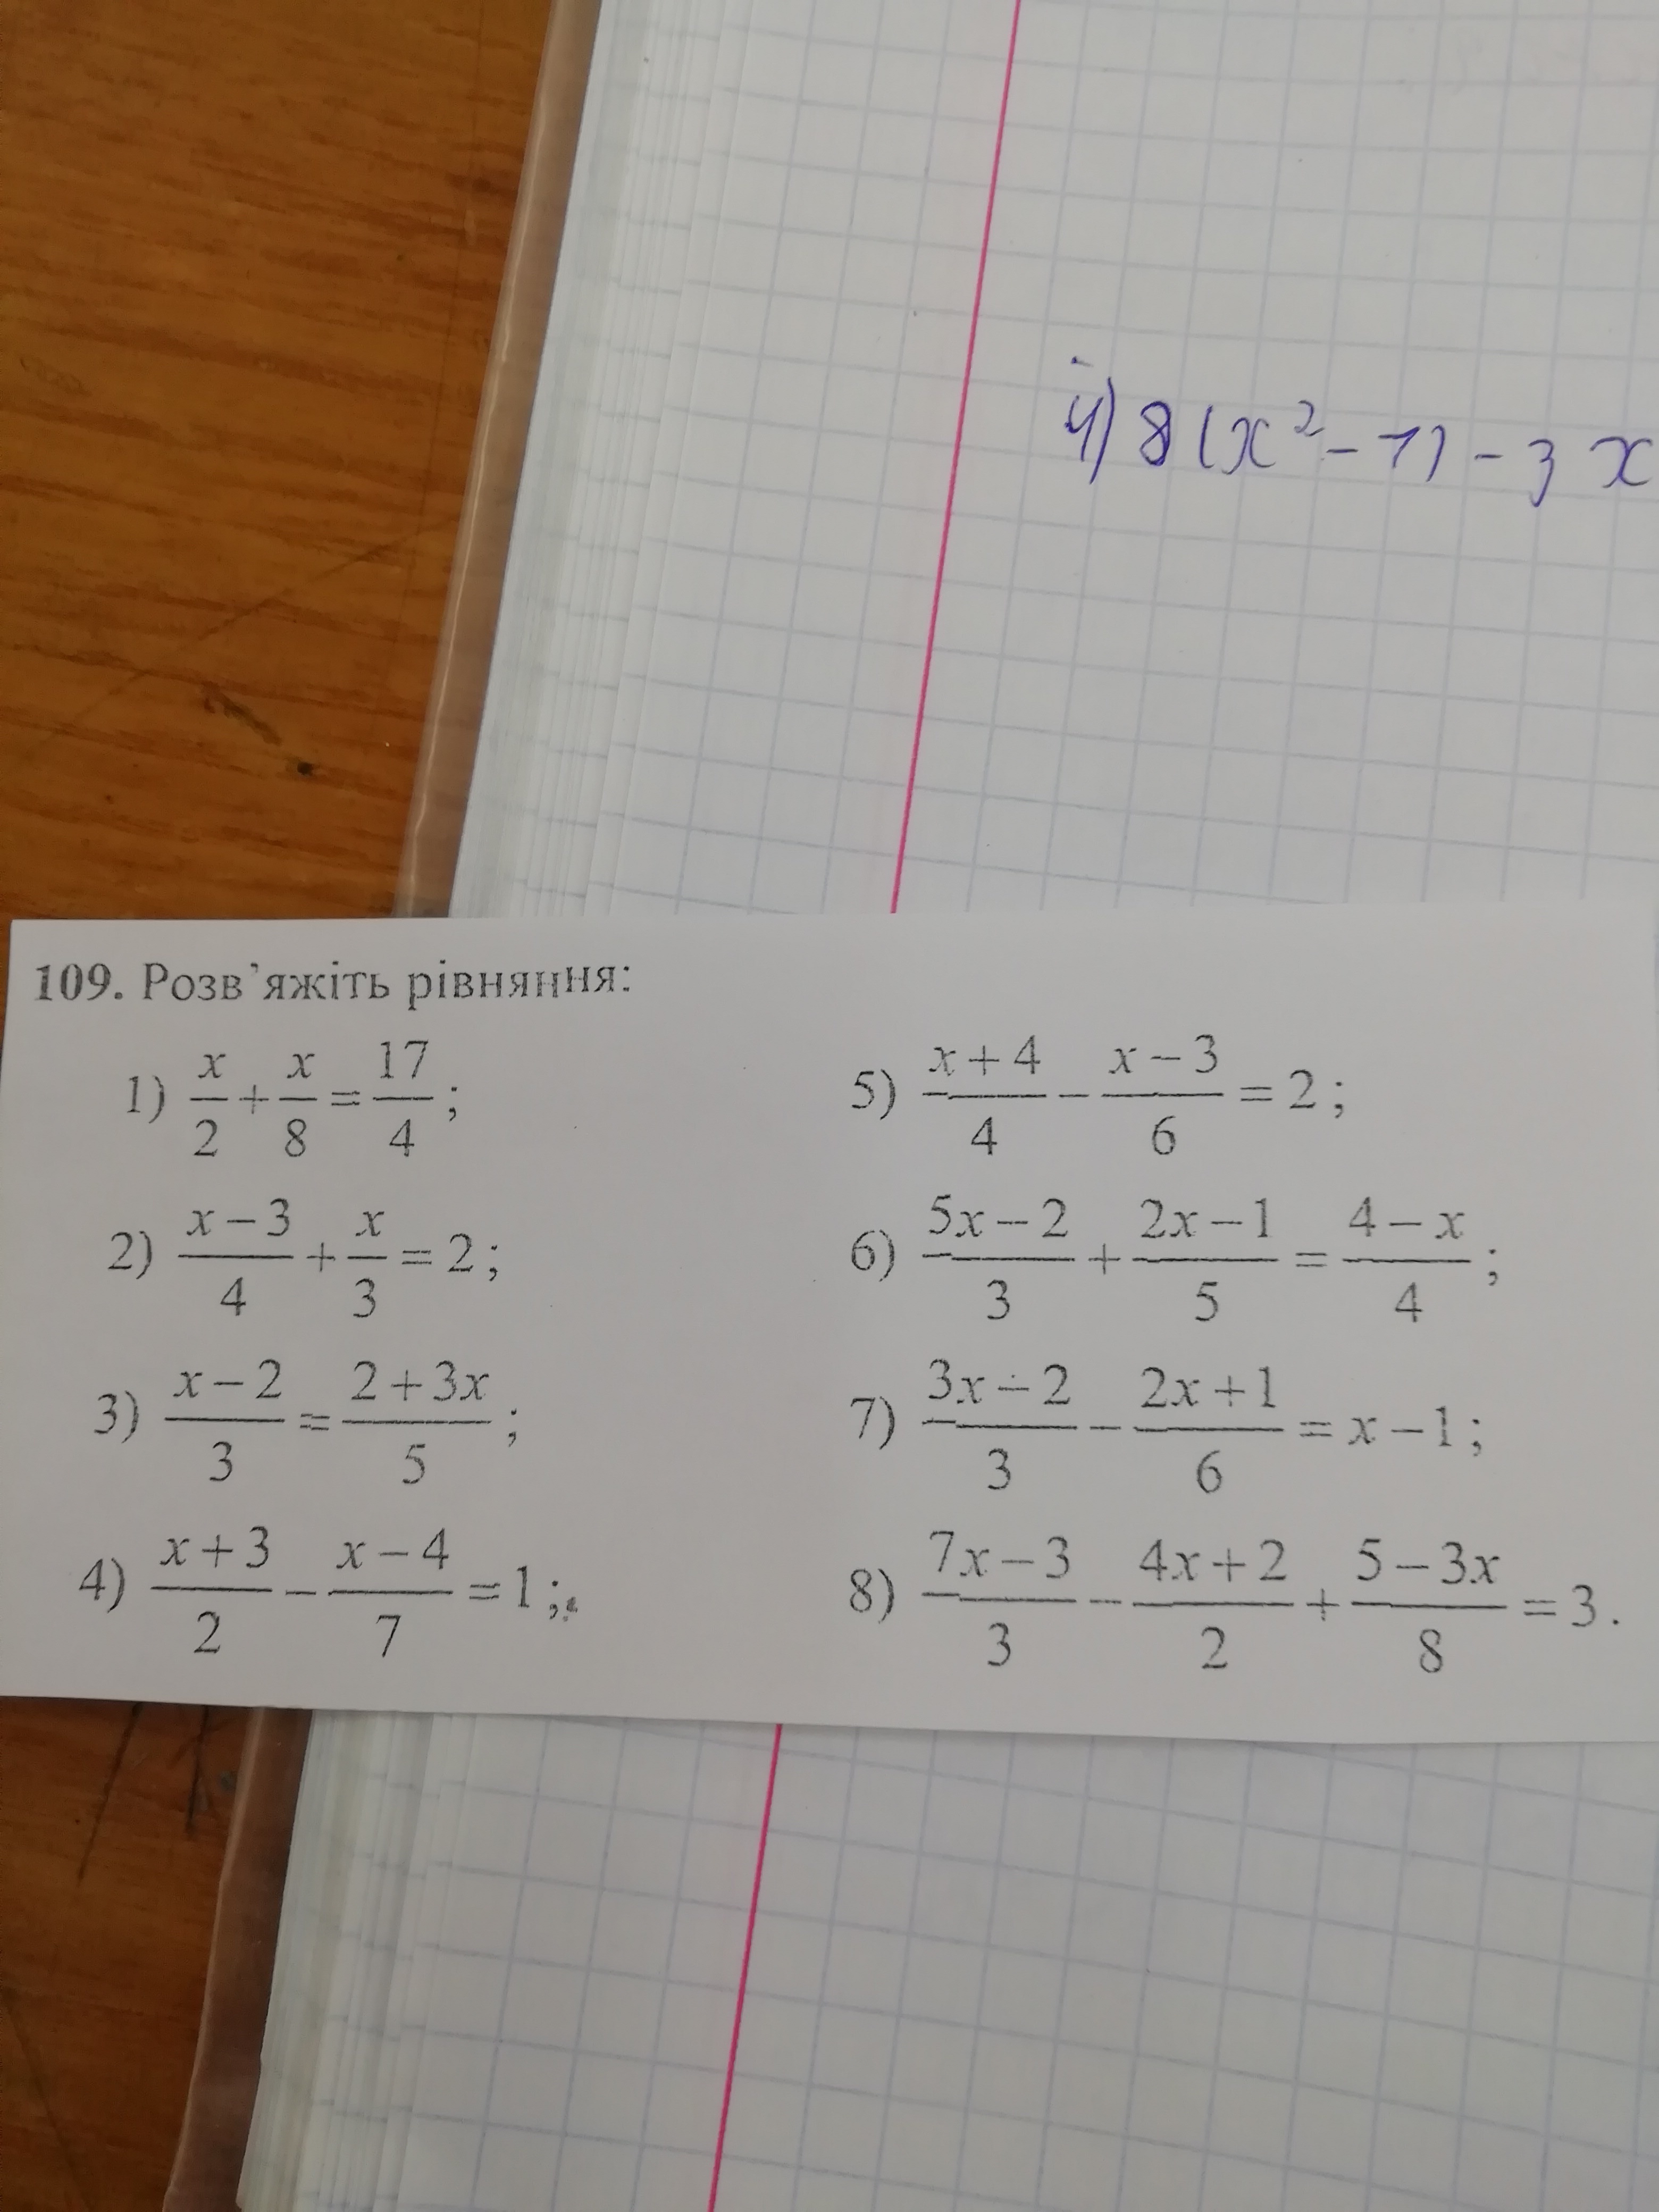 4) 8 (x² - 1) - 3x
109. Розв’яжіть рівняння:
1) x/2 + x/8 = 17/4;
2) (x − 3)/4 + x/3 = 2;
3) (x − 2)/3 = (2 + 3x)/5;
4) (x + 3)/2 − (x − 4)/7 = 1;
5) (x + 4)/4 − (x − 3)/6 = 2;
6) (5x − 2)/3 + (2x − 1)/5 = (4 − x)/4;
7) (3x − 2)/3 − (2x + 1)/6 = x − 1;
8) (7x − 3)/3 − (4x + 2)/2 + (5 − 3x)/8 = 3.